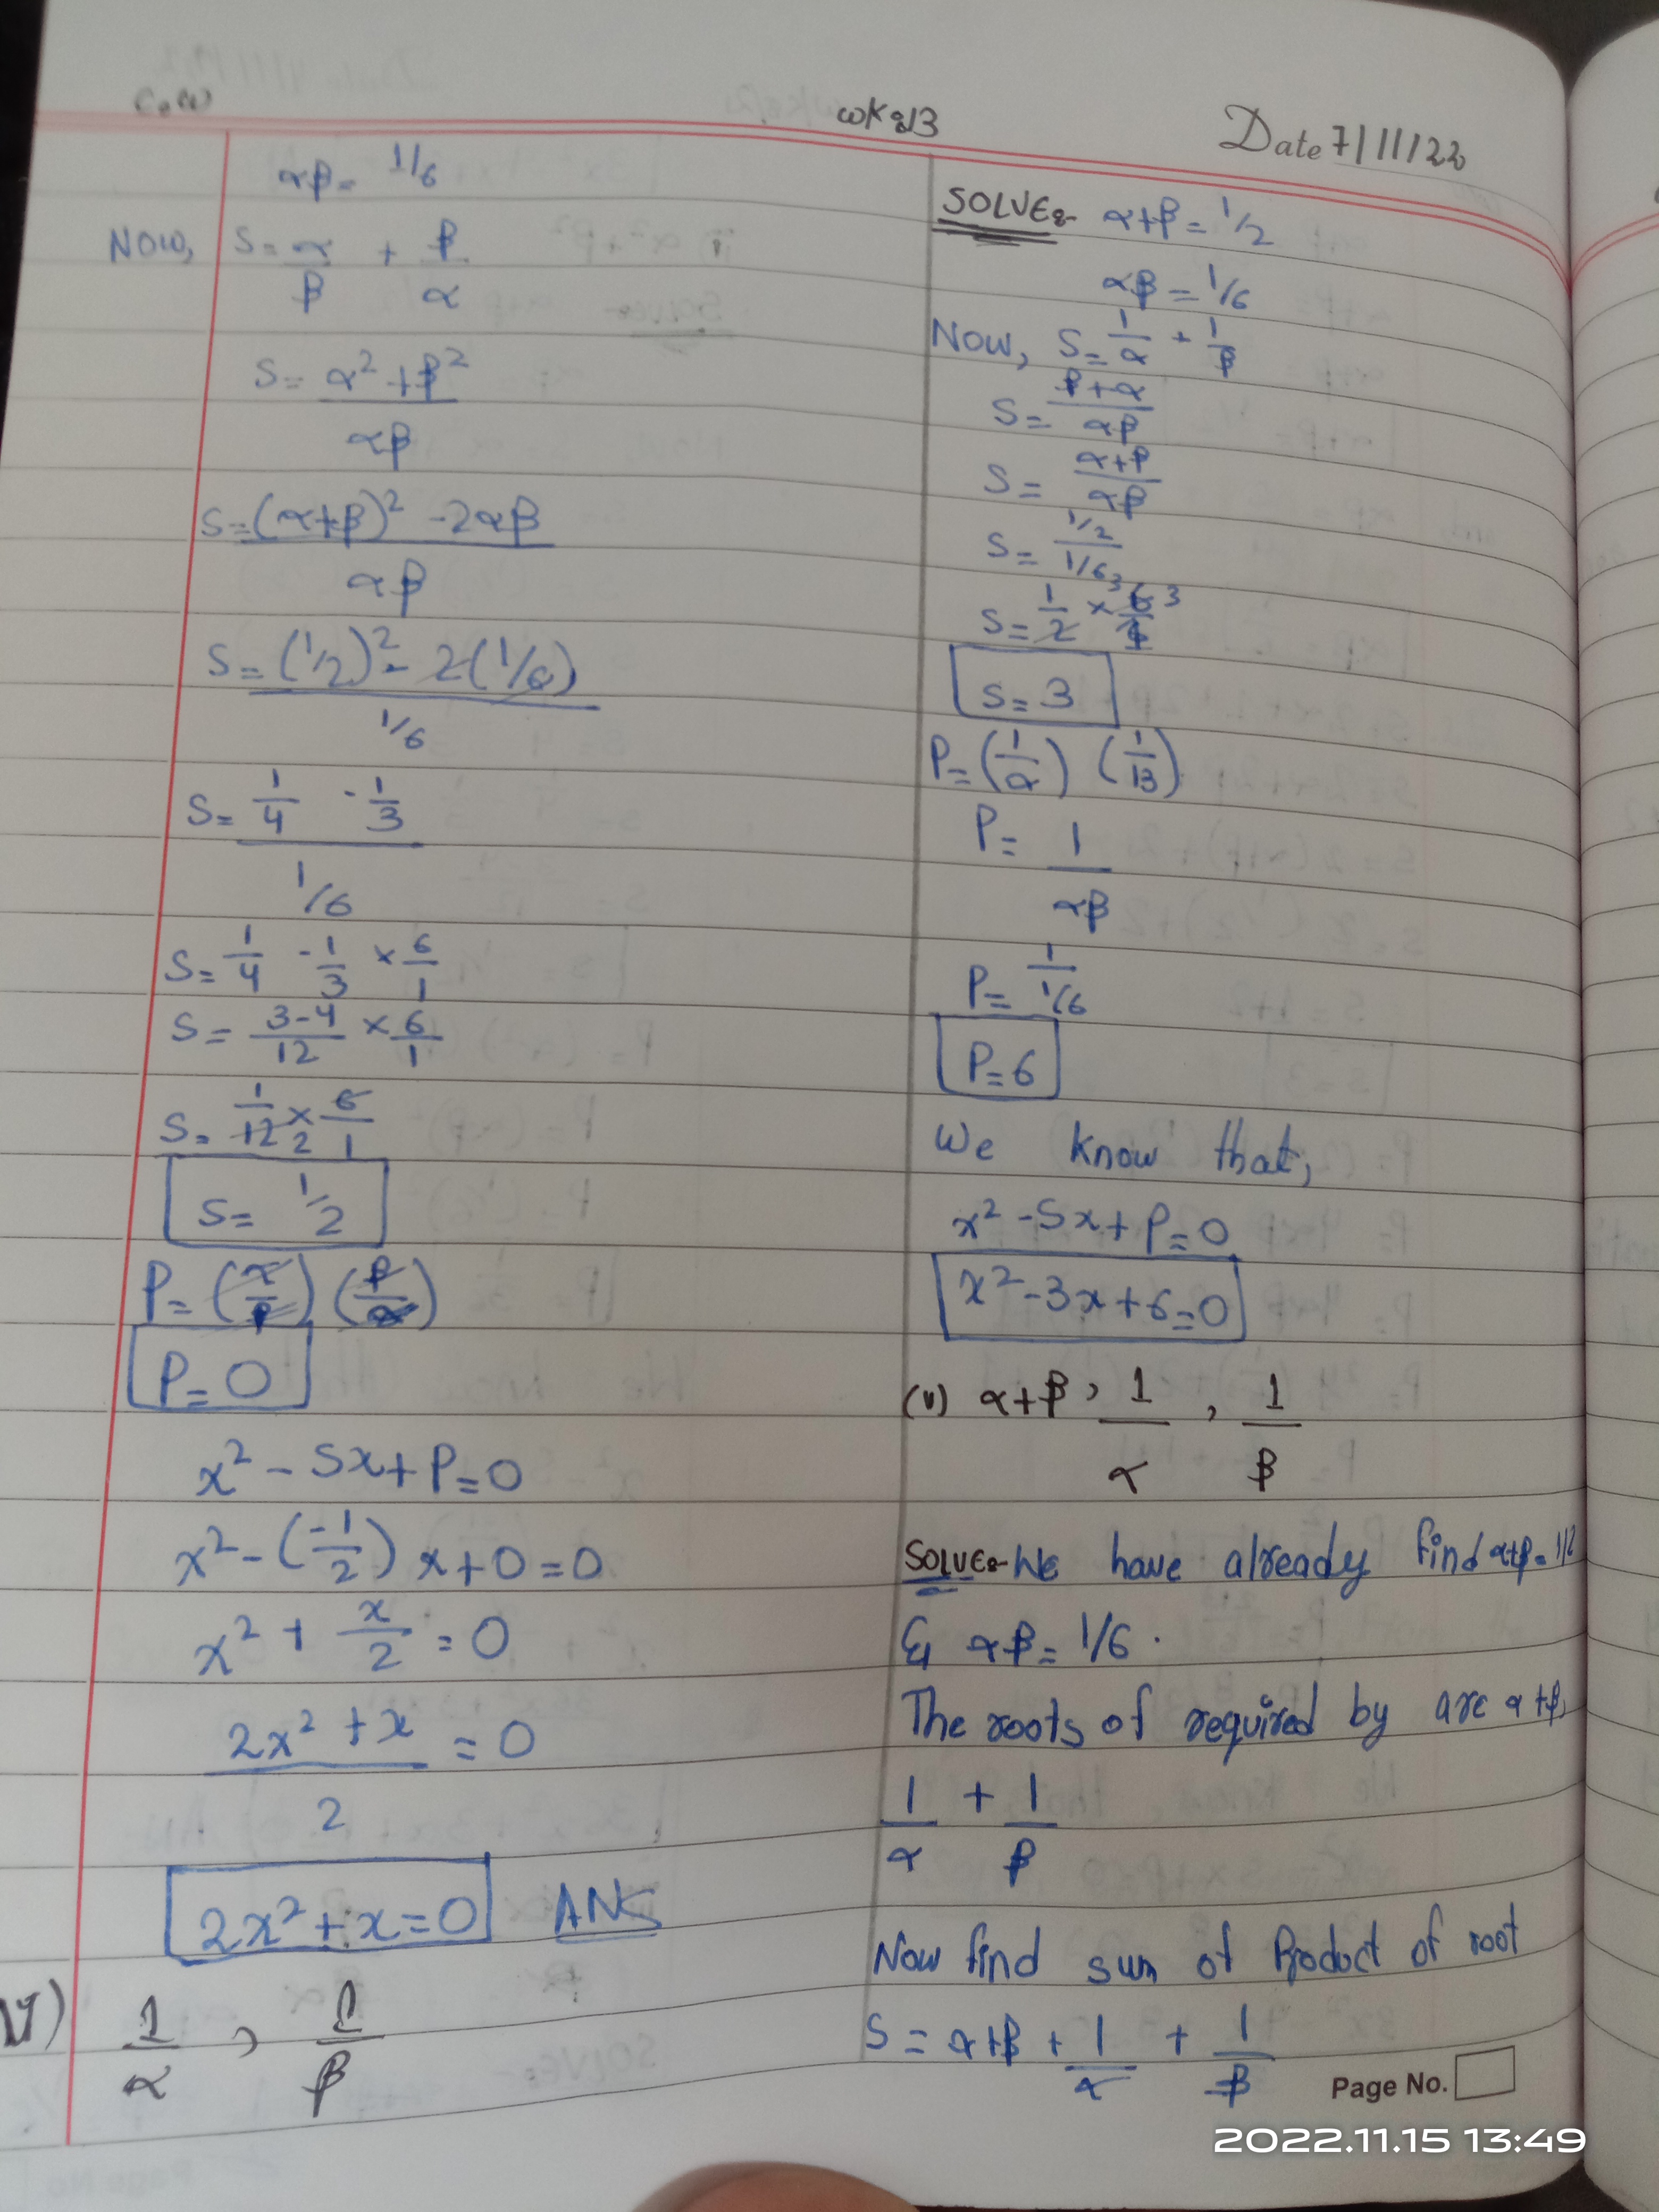 C.W
wK#13
Date 7/11/22
αβ = 1/6
Now, S = α/β + β/α
S = (α² + β²)/αβ
S = ((α+β)² - 2αβ)/αβ
S = ((1/2)² - 2(1/6))/(1/6)
S = (1/4 - 1/3)/(1/6)
S = 1/4 - 1/3 × 6/1
S = (3-4)/12 × 6/1
S = 1/12 2 × 6/1
S = 1/2
P = (α/β) (β/α)
P = 0
x² - Sx + P = 0
x² - (-1/2) x + 0 = 0
x² + x/2 = 0
(2x² + x)/2 = 0
2x² + x = 0 ANS
V) 1/α , 1/β
SOLVE:- α+β = 1/2
αβ = 1/6
Now, S = 1/α + 1/β
S = (β+α)/αβ
S = (α+β)/αβ
S = (1/2)/(1/6)
S = 1/2 × 6/1 3
S = 3
P = (1/α) (1/β)
P = 1/αβ
P = 1/(1/6)
P = 6
We know that,
x² - Sx + P = 0
x² - 3x + 6 = 0
(v) α+β , 1/α , 1/β
SOLVE:- We have already find α+β = 1/2
& αβ = 1/6 .
The roots of required by are α+β,
1/α + 1/β
Now find sum of Product of root
S = α+β + 1/α + 1/β
Page No.
2022.11.15 13:49